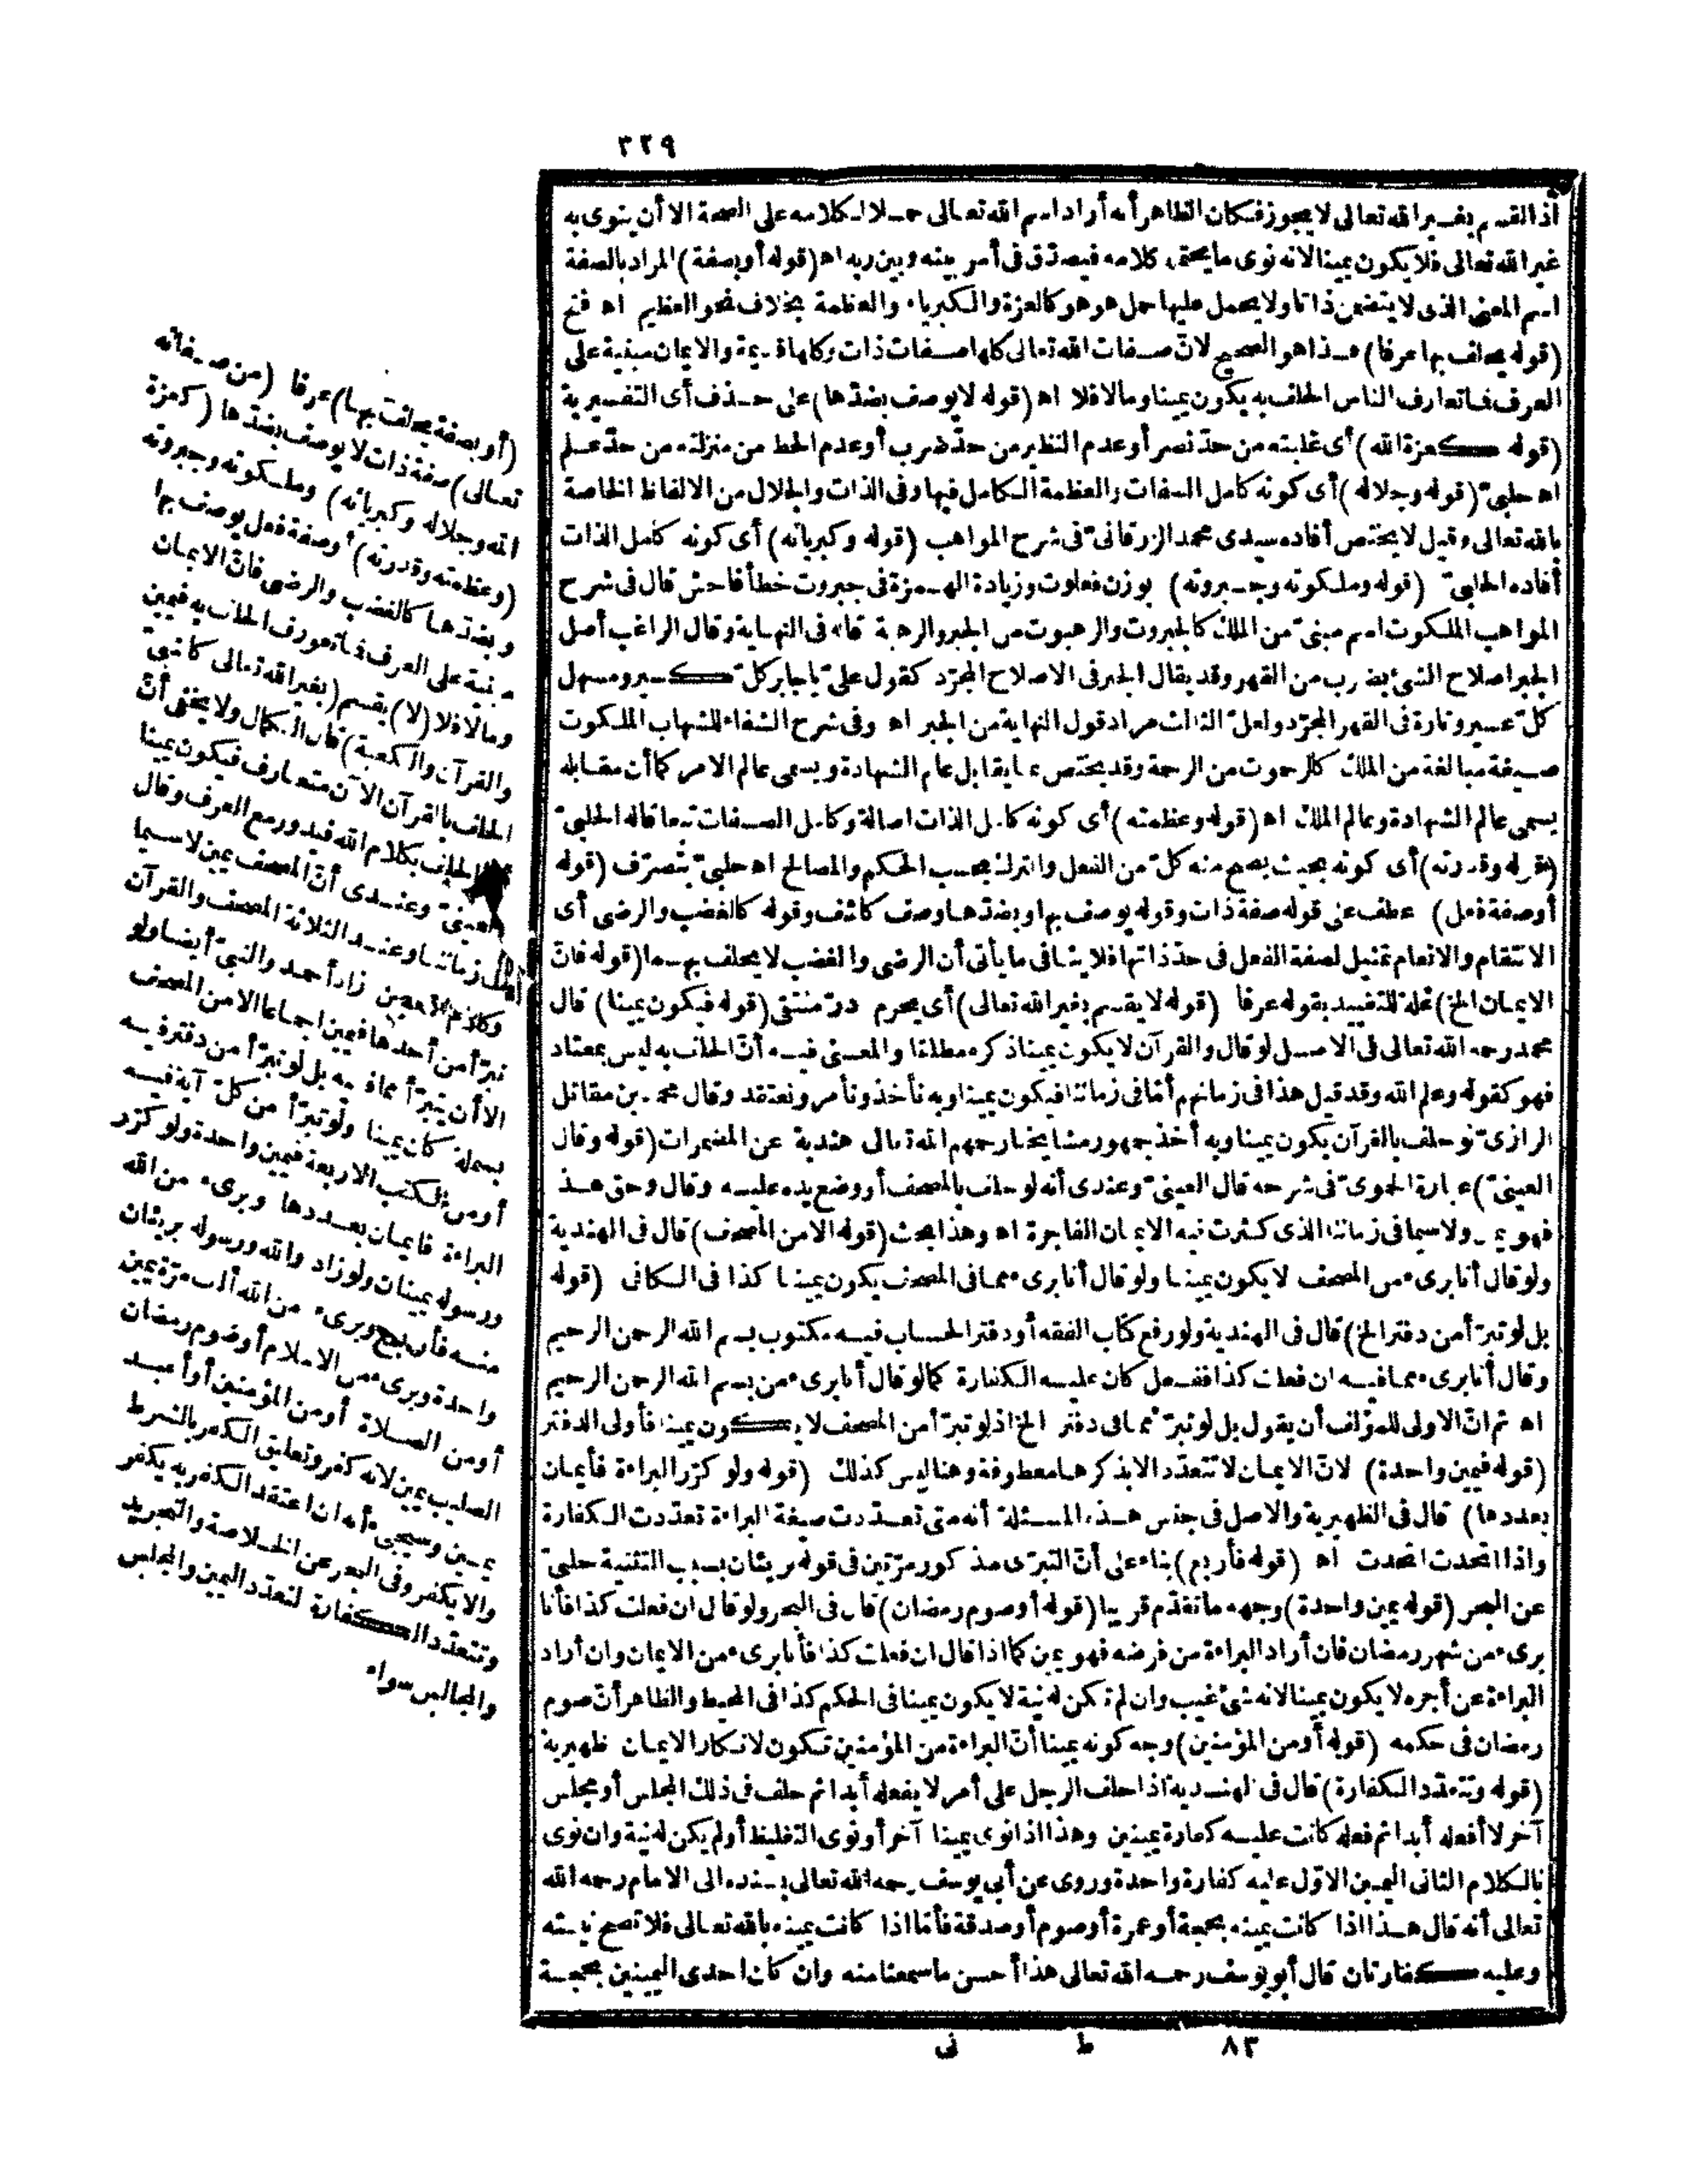 ٣٢٩
اذ القسم بغير الله تعالى لا يجوز فكان الظاهر أنه أراد اسم الله تعالى حملا لكلامه على الصحة الا أن ينوى به
غير الله تعالى فلا يكون يمينا لانه نوى ما يحتمله كلامه فيصدّق فى أمر بينه وبين ربه اه (قوله أو بصفة) المراد بالصفة
اسم المعنى الذى لا يتضمن ذاتا ولا يحمل عليها حمل هو هو كالعزة والكبرياء والعظمة بخلاف نحو العظيم اه فتح
(قوله يحلف بها عرفا) هذا هو الصحيح لانّ صفات الله تعالى كلها صفات ذات وكلها قديمة والايمان مبنية على
العرف فما تعارف الناس الحلف به يكون يمينا وما لا فلا اه (قوله لا يوصف بضدّها) على حذف أى التفسيرية
(قوله كعزة الله) أى غلبته من حدّ نصر أو عدم النظير من حدّ ضرب أو عدم الحط من منزلته من حدّ علم
اه حلبىّ (قوله وجلاله) أى كونه كامل الصفات والعظمة الكامل فيها وفى الذات والجلال من الالفاظ الخاصة
بالله تعالى وقيل لا يختص أفاده سيدى محمد الزرقانىّ فى شرح المواهب (قوله وكبريائه) أى كونه كامل الذات
أفاده الحلبىّ (قوله وملكوته وجبروته) بوزن فعلوت وزيادة الهمزة فى جبروت خطأ فاحش قال فى شرح
المواهب الملكوت اسم مبنىّ من الملك كالجبروت والرهبوت من الجبر والرهبة قاله فى النهاية وقال الراغب أصل
الجبر اصلاح الشئ بضرب من القهر وقد يقال الجبر فى الاصلاح المجرّد كقول علىّ يا جابر كلّ كسير ومسهل
كلّ عسير وتارة فى القهر المجرّد ولعلّ الثالث مراد قول النهاية من الجبر اه وفى شرح الشفاء للشهاب الملكوت
صيغة مبالغة من الملك كالرحموت من الرحمة وقد يختص بما يقابل عالم الشهادة ويسمى عالم الامر كما أن مقابله
يسمى عالم الشهادة وعالم الملك اه (قوله وعظمته) أى كونه كامل الذات اصالة وكامل الصفات تبعا قاله الحلبىّ
(قوله وقدرته) أى كونه بحيث يصح منه كلّ من الفعل والترك بحسب الحكم والمصالح اه حلبىّ بتصرّف (قوله
أو صفة فعل) عطف على قوله صفة ذات وقوله يوصف بها وبضدّها وصف كاشف وقوله كالغضب والرضى أى
الانتقام والانعام تمثيل لصفة الفعل فى حدّ ذاتها فلا ينافى ما يأتى أن الرضى والغضب لا يحلف بهما (قوله فانّ
الايمان الخ) علة للتقييد بقوله عرفا (قوله لا يقسم بغير الله تعالى) أى يحرم درّ منتقى (قوله فيكون يمينا) قال
محمد رحمه الله تعالى فى الاصل لو قال والقرآن لا يكون يمينا ذكره مطلقا والمعنى فيه أنّ الحلف به ليس بمعتاد
فهو كقوله وعلم الله وقد قيل هذا فى زمانهم أمّا فى زماننا فيكون يمينا وبه نأخذ ونأمر ونعتقد وقال محمد بن مقاتل
الرازىّ لو حلف بالقرآن يكون يمينا وبه أخذ جمهور مشايخنا رحمهم الله تعالى هندية عن المضمرات (قوله وقال
العينىّ) عبارة الحموىّ فى شرحه قال العينىّ وعندى أنه لو حلف بالمصحف أو وضع يده عليه وقال وحق هذا
فهو يمين ولا سيما فى زماننا الذى كثرت فيه الايمان الفاجرة اه وهذا بحث (قوله الا من المصحف) قال فى الهندية
ولو قال أنا برىء من المصحف لا يكون يمينا ولو قال أنا برىء مما فى المصحف يكون يمينا كذا فى الكافى (قوله
بل لو تبرّأ من دفتر الخ) قال فى الهندية ولو رفع كتاب الفقه أو دفتر الحساب فيه مكتوب بسم الله الرحمن الرحيم
وقال أنا برىء مما فيه ان فعلت كذا ففعل كان عليه الكفارة كما لو قال أنا برىء من بسم الله الرحمن الرحيم
اه ثم انّ الاولى للمؤلف أن يقول بل لو تبرّأ مما فى دفتر الخ اذ لو تبرّأ من المصحف لا يكون يمينا فأولى الدفتر
(قوله فيمين واحدة) لانّ الايمان لا تتعدّد الا بذكرها معطوفة وهنا ليس كذلك (قوله ولو كرّر البراءة فأيمان
بعددها) قال فى الظهيرية والاصل فى جنس هذه المسئلة أنه متى تعدّدت صيغة البراءة تعدّدت الكفارة
واذا اتحدت اتحدت اه (قوله فأربع) بناء على أنّ التبرّى مذكور مرّتين فى قوله بريئان بسبب التثنية حلبىّ
عن البحر (قوله يمين واحدة) وجهه ما تقدّم قريبا (قوله أو صوم رمضان) قال فى البحر ولو قال ان فعلت كذا فأنا
برىء من شهر رمضان فان أراد البراءة من فرضه فهو يمين كما اذا قال ان فعلت كذا فأنا برىء من الايمان وان أراد
البراءة عن أجره لا يكون يمينا لانه شئ غيب وان لم تكن له نية لا يكون يمينا فى الحكم كذا فى المحيط والظاهر أنّ صوم
رمضان فى حكمه (قوله أو من المؤمنين) وجه كونه يمينا أنّ البراءة من المؤمنين تكون لانكار الايمان ظهيرية
(قوله وتتعدّد الكفارة) قال فى الهندية اذا حلف الرجل على أمر لا يفعله أبدا ثم حلف فى ذلك المجلس أو مجلس
آخر لا أفعله أبدا ثم فعله كانت عليه كفارة يمينين وهذا اذا نوى يمينا آخر أو نوى التغليظ أو لم يكن له نية وان نوى
بالكلام الثانى اليمين الاوّل عليه كفارة واحدة وروى عن أبى يوسف رحمه الله تعالى بسنده الى الامام رحمه الله
تعالى أنه قال هذا اذا كانت يمينه بحجة أو عمرة أو صوم أو صدقة فأمّا اذا كانت يمينه بالله تعالى فلا تصح نيته
وعليه كفارتان قال أبو يوسف رحمه الله تعالى هذا أحسن ما سمعنا منه وان كان احدى اليمينين بحجة
(أو بصفة يحلف بها) عرفا (من صفاته
تعالى) صفة ذات لا يوصف بضدّها (كعزة
الله وجلاله وكبريائه) وملكوته وجبروته
(وعظمته وقدرته) أو صفة فعل يوصف بها
وبضدّها كالغضب والرضى فانّ الايمان
مبنية على العرف فما تعورف الحلف به فيمين
وما لا فلا (لا) يقسم (بغير الله تعالى كالنبىّ
والقرآن والكعبة) قال الكمال ولا يخفى أنّ
الحلف بالقرآن الآن متعارف فيكون يمينا
الحلف بكلام الله فيدور مع العرف وقال
العينىّ وعندى أنّ المصحف يمين لا سيما
فى زماننا وعند الثلاثة المصحف والقرآن
وكلام الله يمين زاد أحمد والنبىّ أيضا ولو
تبرّأ من أحدها فيمين اجماعا الا من المصحف
الا أن يتبرّأ مما فيه بل لو تبرّأ من دفتر فيه
بسملة كان يمينا ولو تبرّأ من كلّ آية فيه
أو من الكتب الاربعة فيمين واحدة ولو كرّر
البراءة فأيمان بعددها وبرىء من الله
ورسوله يمينان ولو زاد والله ورسوله بريئان
منه فأربع وبرىء من الله ألف مرّة يمين
واحدة وبرىء من الاسلام أو صوم رمضان
أو من الصلاة أو من المؤمنين أو أعبد
الصليب يمين لانه كفر وتعليق الكفر بالشرط
يمين وسيجىء أنه ان اعتقد الكفر به يكفر
والا يكفر وفى البحر عن الخلاصة والتجريد
وتتعدّد الكفارة لتعدّد اليمين والمجلس
والمجالس سواء
٨٣ ط نى